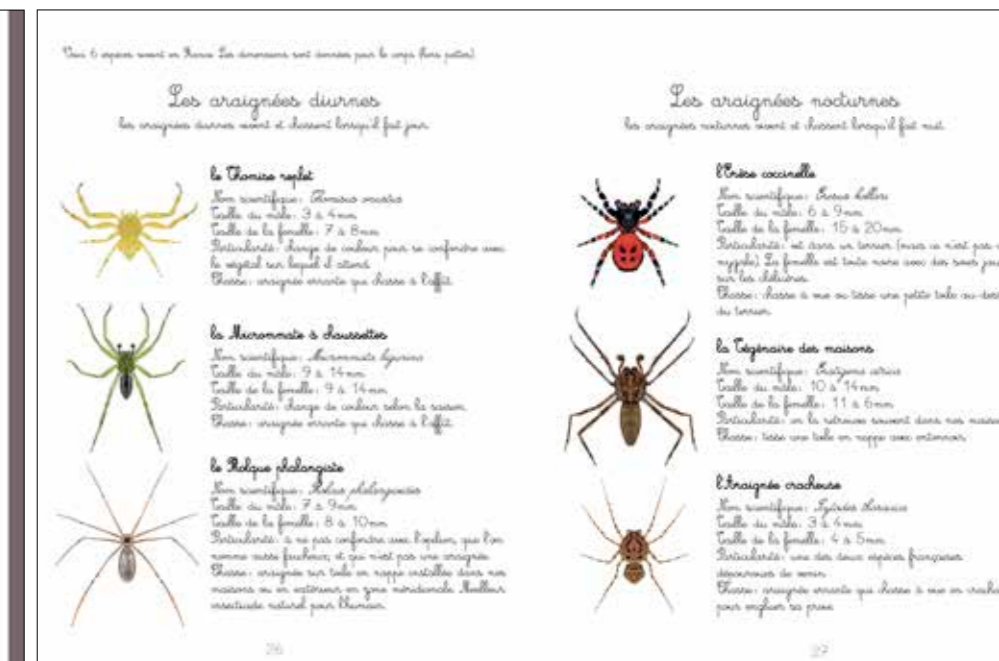 Voici 6 espèces vivant en France. Les dimensions sont données pour le corps (hors pattes).
Les araignées diurnes
les araignées diurnes vivent et chassent lorsqu'il fait jour.
le Thomise replet
Nom scientifique : Thomisus onustus
Taille du mâle : 3 à 4 mm
Taille de la femelle : 7 à 8 mm
Particularité : change de couleur pour se confondre avec
le végétal sur lequel il attend.
Chasse : araignée errante qui chasse à l'affût.
la Micrommate à chaussettes
Nom scientifique : Micrommata ligurina
Taille du mâle : 9 à 14 mm
Taille de la femelle : 9 à 14 mm
Particularité : change de couleur selon la saison.
Chasse : araignée errante qui chasse à l'affût.
le Pholque phalangiste
Nom scientifique : Pholcus phalangioides
Taille du mâle : 7 à 9 mm
Taille de la femelle : 8 à 10 mm
Particularité : à ne pas confondre avec l'opilion, que l'on
nomme aussi faucheux, et qui n'est pas une araignée.
Chasse : araignée sur toile en nappe installée dans nos
maisons ou en extérieur en zone méridionale. Meilleur
insecticide naturel pour l'humain.
26
Les araignées nocturnes
les araignées nocturnes vivent et chassent lorsqu'il fait nuit.
l'Érèse coccinelle
Nom scientifique : Eresus kollari
Taille du mâle : 6 à 9 mm
Taille de la femelle : 15 à 20 mm
Particularité : vit dans un terrier (mais ce n'est pas
mygale). La femelle est toute noire avec des soies
sur les chélicères.
Chasse : chasse à vue ou tisse une petite toile
du terrier.
la Tégénaire des maisons
Nom scientifique : Eratigena atrica
Taille du mâle : 10 à 14 mm
Taille de la femelle : 11 à 6 mm
Particularité : on la retrouve souvent dans nos
Chasse : tisse une toile en nappe avec entonnoir.
l'Araignée cracheuse
Nom scientifique : Scytodes thoracica
Taille du mâle : 3 à 4 mm
Taille de la femelle : 4 à 5 mm
Particularité : une des deux espèces françaises
dépourvues de venin.
Chasse : araignée errante qui chasse à vue en
pour engluer sa proie.
27